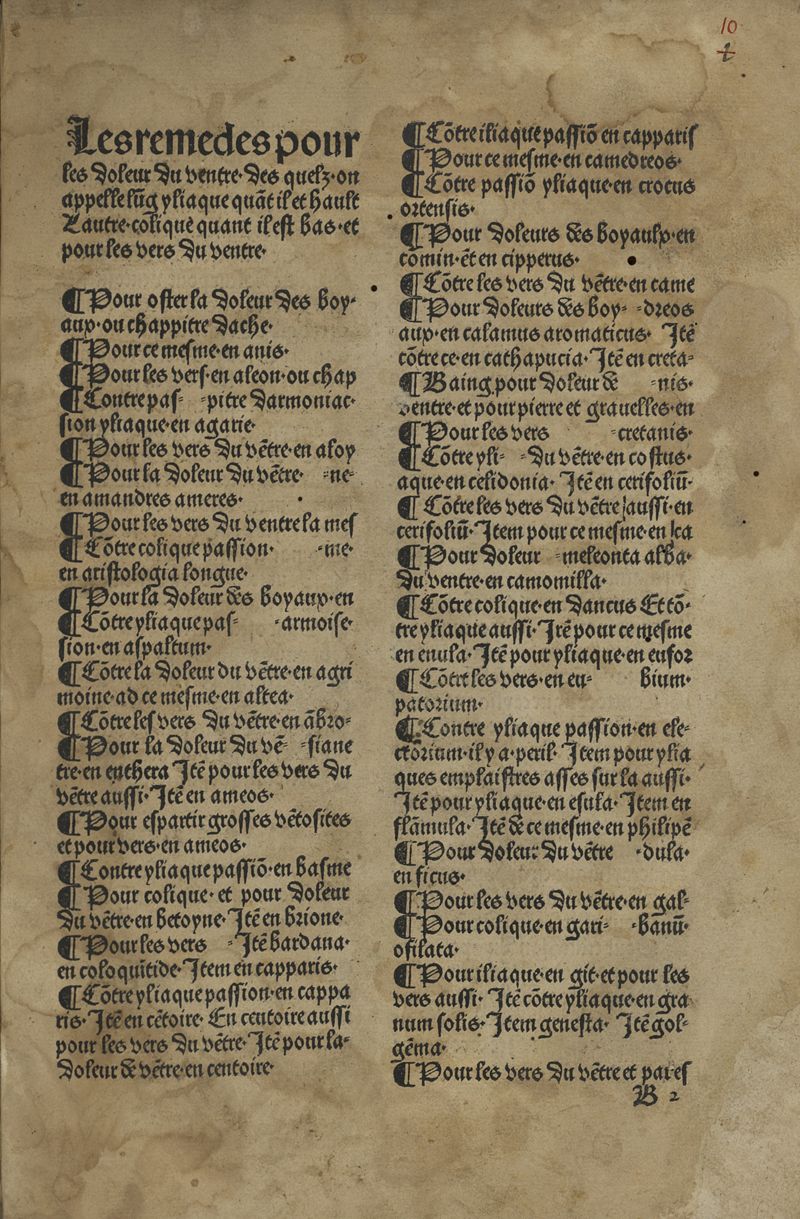 10
Les remedes pour
les doleur du ventre· des quelz·on
appelle lũg yliaque quãt il et hault
Lautre·colique quant il est bas·et
pour les vers du ventre·
¶Pour oster la doleur des boy-
aux·ou chappitre dache·
¶Pour ce mesme·en anis·
¶Pour les vers·en aleon·ou chap
¶Contre pas- -pitre darmoniac·
sion yliaque·en agarie·
¶Pour les vers du vẽtre·en aloy
¶Pour la doleur du vẽtre· -ne-
en amandres ameres·
¶Pour les vers du ventre la mes
¶Cõtre colique passion· -me·
en aristologia longue·
¶Pour la doleur des boyaux·en
¶Cõtre yliaque pas- -armoise·
sion·en aspaltum·
¶Cõtre la doleur du vẽtre·en agri
moine·ad ce mesme·en altea·
¶Cõtre les vers du vẽtre·en ãbro-
¶Pour la doleur du vẽ- -siane
tre·en enthera Itẽ pour les vers du
vẽtre aussi·Itẽ en ameos·
¶Pour espartir grosses vẽtosites
et pour vers·en ameos·
¶Contre yliaque passiõ·en basme
¶Pour colique· et pour doleur
du vẽtre·en betoyne·Itẽ en brione·
¶Pour les vers -Itẽ bardana·
en coloquĩtide·Item en capparis·
¶Cõtre yliaque passion·en cappa
ris·Itẽ en cẽtoire· En centoire aussi
pour les vers du vẽtre·Itẽ pour la-
doleur de vẽtre·en centoire·
¶Cõtre iliaque passiõ en capparis
¶Pour ce mesme·en camedreos·
¶Cõtre passiõ yliaque·en crocus
ortensis·
¶Pour doleurs des boyaulx·en
comin·et en cipperus·
¶Cõtre les vers du vẽtre·en came
¶Pour doleurs des boy- -dreos
aux·en calamus aromaticus· Itẽ
cõtre ce·en cathapucia·Itẽ en creta-
¶Baing pour doleur de -nis·
ventre·et pour pierre et grauelles·en
¶Pour les vers -cretanis·
¶Cõtre yli- -du vẽtre·en costus·
aque·en celidonia· Itẽ en cerifoliũ·
¶Cõtre les vers du vẽtre aussi·en
cerifoliũ·Item pour ce mesme·en ca
¶Pour doleur -meleonta alba·
du ventre·en camomilla·
¶Cõtre colique·en dancus Et cõ-
tre yliaque aussi·Itẽ pour ce mesme
en enula·Itẽ pour yliaque·en eufor
¶Cõtre les vers·en eu- bium·
patorium·
¶Contre yliaque passion·en ele-
ctorium·il y a·peril· Item pour ylia
ques emplaistres asses sur la aussi·
Itẽ pour yliaque·en esula·Item en
flãmula·Itẽ de ce mesme·en philipẽ
¶Pour doleur du vẽtre -dula·
en ficus·
¶Pour les vers du vẽtre·en gal-
¶Pour colique·en gari- -banũ·
ofilata·
¶Pour iliaque·en git·et pour les
vers aussi· Itẽ cõtre yliaque·en gra
num solis·Item genesta· Itẽ gol-
gẽma·
¶Pour les vers du vẽtre et par es
B 2